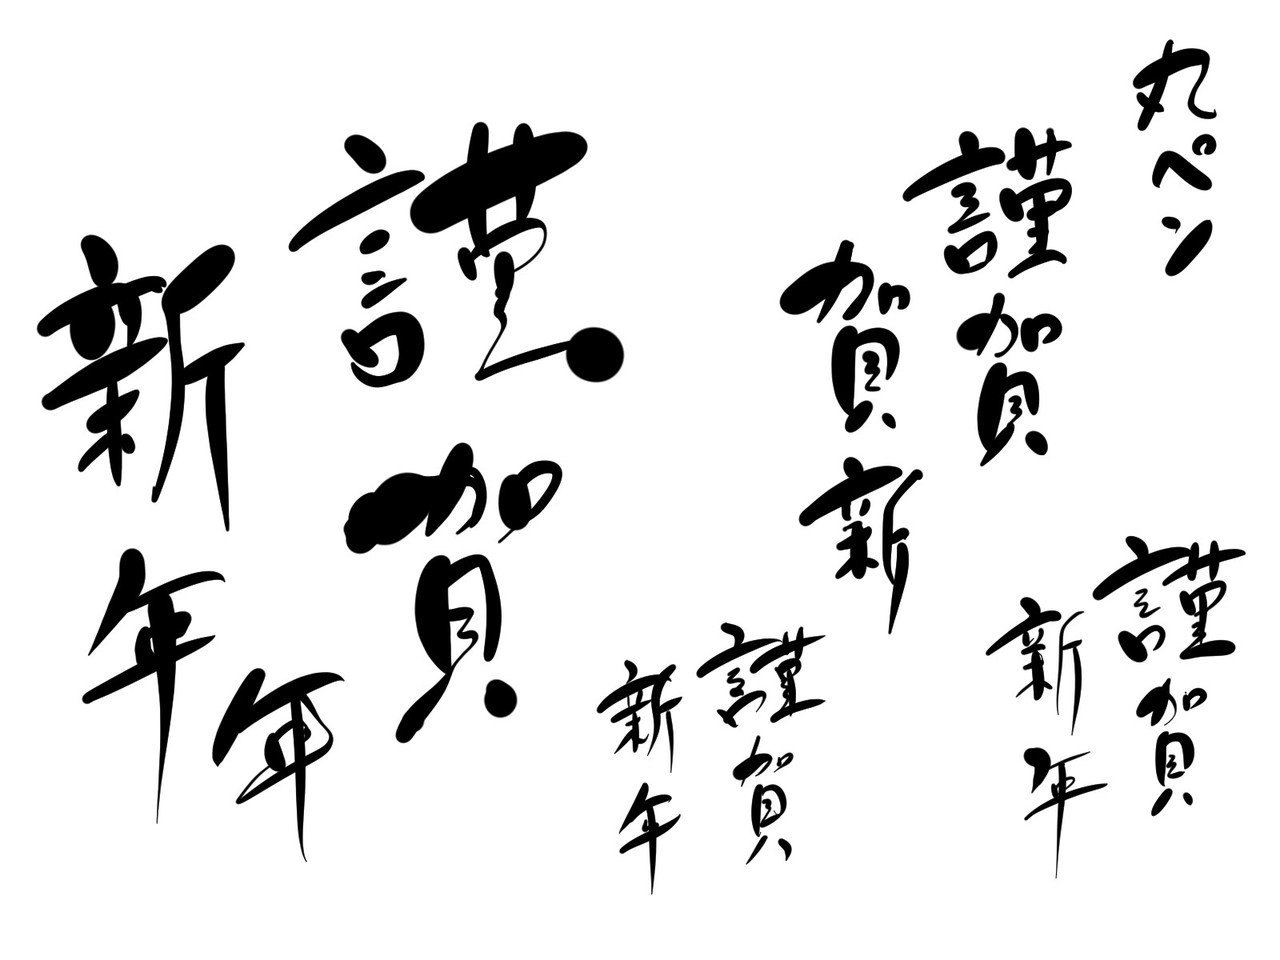 丸ペン
謹賀
賀新
謹賀
新年
年
謹賀
新年
謹賀
新年